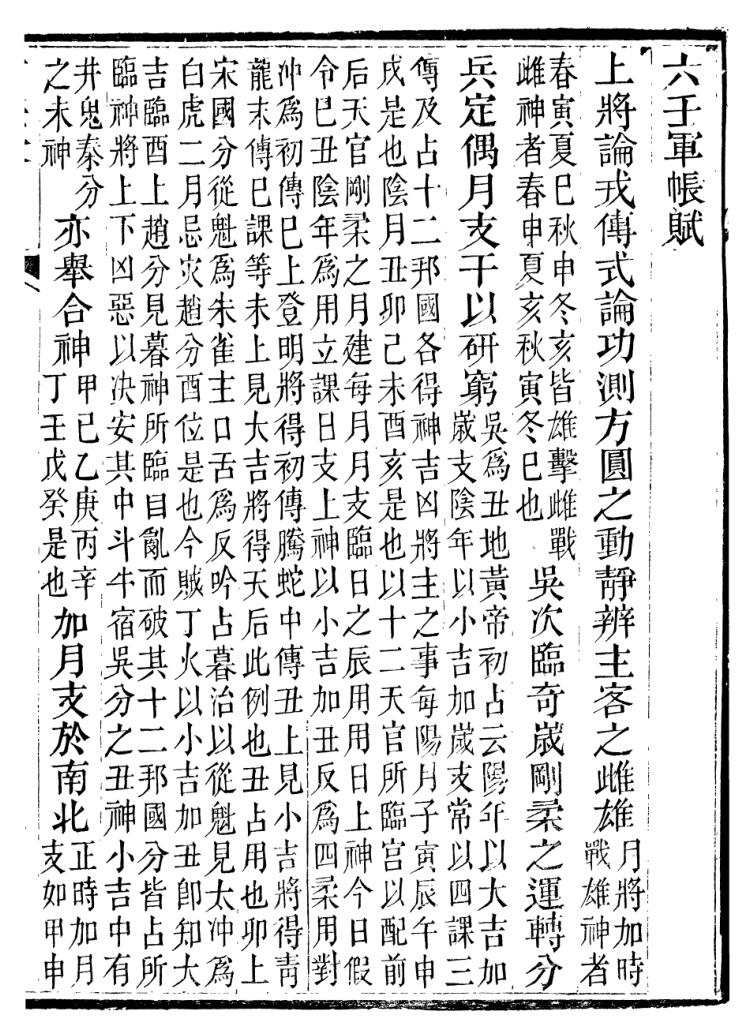 六壬軍帳賦
上將論戎傳式論功測方圓之動靜辨主客之雌雄月將加時
戰雄神者
春寅夏巳秋申冬亥皆雄擊雌戰
雌神者春申夏亥秋寅冬巳也
吳次臨奇歲剛柔之運轉分
兵定偶月支干以研窮吳為丑地黃帝初占云陽年以大吉加
歲支陰年以小吉加歲支常以四課三
傳及占十二邦國各得神吉凶將主之事每陽月子寅辰午申
戌是也陰月丑卯己未酉亥是也以十二天官所臨宮以配前
后天官剛柔之月建每月月支臨日之辰用用日上神今日假
令巳丑陰年為用立課日支上神以小吉加丑反為四柔用對
冲為初傳巳上登明將得初傳騰蛇中傳丑上見小吉將得靑
龍末傳巳課等未上見大吉將得天后此例也丑占用也卯上
宋國分從魁為朱雀主口舌為反吟占暮治以從魁見太冲為
白虎二月忌灾趙分酉位是也今賊丁火以小吉加丑卽知大
吉臨酉上趙分見暮神所臨自亂而破其十二邦國分皆占所
臨神將上下凶惡以决安其中斗牛宿吳分之丑神小吉中有
井鬼秦分
之未神
亦舉合神甲己乙庚丙辛
丁壬戊癸是也
加月支於南北正時加月
支如甲申